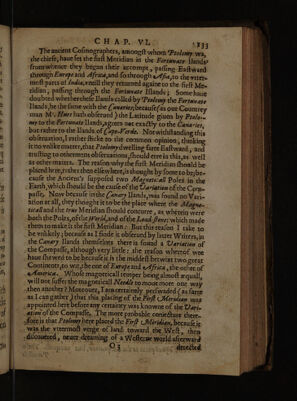 CHAP. VI. 133
The ancient Cosmographers, amongst whom Ptolomy was
the chiefe, haue set the first Meridian in the Fortunate Ilands
from whence they began their accompt, passing Eastward
through Europe and Africa, and so through Asia, to the vtter-
most parts of India; vntill they returned againe to the first Me-
ridian, passing through the Fortunate Ilands; Some haue
doubted whether these Ilands called by Ptolomy the Fortunate
Ilands, be the same with the Canaries; because (as our Countrey
man Mr. Hues hath obserued) the Latitude giuen by Ptolo-
my to the Fortunate Ilands, agrees not exactly to the Canaries,
but rather to the Ilands of Cape-Verde. Notwithstanding this
obseruation, I rather sticke to the common opinion, thinking
it no vnlike matter, that Ptolomy dwelling farre Eastward, and
trusting to other mens obseruations, should erre in this, as well
as other matters. The reason why the first Meridian should be
placed here, rather then else where, is thought by some to be, be-
cause the Ancients supposed two Magneticall Poles in the
Earth, which should be the cause of the Variation of the Com-
passe. Now because in the Canary Ilands, was found no Vari-
ation at all, they thought it to be the place where the Magne-
ticall and the true Meridian should concurre, as wherein were
both the Poles, of the World, and of the Load-stone: which made
them to make it the first Meridian: But this reason I take to
be vnlikely; because as I finde it obserued by later Writers, in
the Canary Ilands themselues there is found a Variation of
the Compasse, although very little: the reason whereof we
haue shewed to be because it is the middest betwixt two great
Continents, to wit, the one of Europe and Africa, the other of
America. Whose magneticall temper being almost equall,
will not suffer the magneticall Needle to moue more one way
then another? Moreouer, I am certainely perswaded (as farre
as I can gather) that this placing of the First Meridian was
appointed here before any certainty was knowne of the Vari-
ation of the Compasse. The more probable coniecture there-
fore is that Ptolomy here placed the First Meridian, because it
was the vttermost verge of land toward the West, then
discouered, neuer dreaming of a Westerne world afterward
O 3 detected